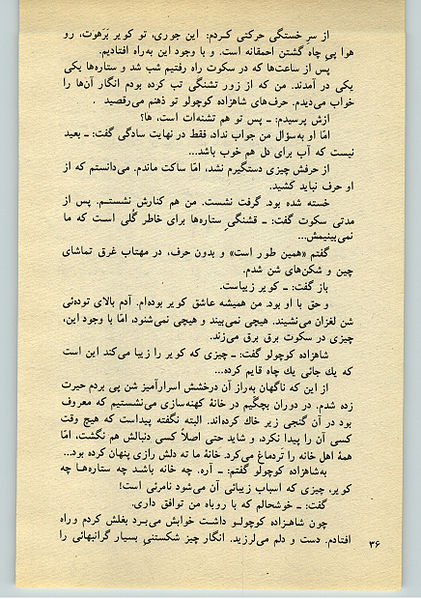 از سر خستگی حرکتی کردم: این جوری، تو کویر بَرَهوت، رو
هوا پی چاه گشتن احمقانه است. و با وجود این به‌راه افتادیم.
پس از ساعت‌ها که در سکوت راه رفتیم شب شد و ستاره‌ها یکی
یکی در آمدند. من که از زور تشنگی تب کرده بودم انگار آن‌ها را
خواب می‌دیدم. حرف‌های شاهزاده کوچولو تو ذهنم می‌رقصید.
ازش پرسیدم: ـ پس تو هم تشنه‌ات است، ها؟
امّا او به‌سؤال من جواب نداد، فقط در نهایت سادگی گفت: ـ بعید
نیست که آب برای دل هم خوب باشد...
از حرفش چیزی دستگیرم نشد، امّا ساکت ماندم. می‌دانستم که از
او حرف نباید کشید.
خسته شده بود. گرفت نشست. من هم کنارش نشستم. پس از
مدتی سکوت گفت: ـ قشنگی ستاره‌ها برای خاطر گُلی است که ما
نمی‌بینیمش...
گفتم «همین طور است» و بدون حرف، در مهتاب غرق تماشای
چین و شکن‌های شن شدم.
باز گفت: ـ کویر زیباست.
و حق با او بود. من همیشه عاشق کویر بوده‌ام. آدم بالای توده‌ئی
شن لغزان می‌نشیند. هیچی نمی‌بیند و هیچی نمی‌شنود، امّا با وجود این،
چیزی در سکوت برق برق می‌زند.
شاهزاده کوچولو گفت: ـ چیزی که کویر را زیبا می‌کند این است
که یك جائی یك چاه قایم کرده...
از این که ناگهان به‌راز آن درخشش اسرارآمیز شن پی بردم حیرت
زده شدم. در دوران بچگیم در خانهٔ کهنه‌سازی می‌نشستیم که معروف
بود در آن گنجی زیر خاك کرده‌اند. البته نگفته پیداست که هیچ وقت
کسی آن را پیدا نکرد، و شاید حتی اصلاً کسی دنبالش هم نگشت، امّا
همهٔ اهل خانه را تردماغ می‌کرد. خانهٔ ما ته دلش رازی پنهان کرده بود...
به‌شاهزاده کوچولو گفتم: ـ آره. چه خانه باشد چه ستاره‌ها چه
کویر، چیزی که اسباب زیبائی آن می‌شود نامرئی است!
گفت: ـ خوشحالم که با روباه من توافق داری.
چون شاهزاده کوچولو داشت خوابش می‌برد بغلش کردم و راه
افتادم. دست و دلم می‌لرزید. انگار چیز شکستنی بسیار گرانبهائی را
۳۶